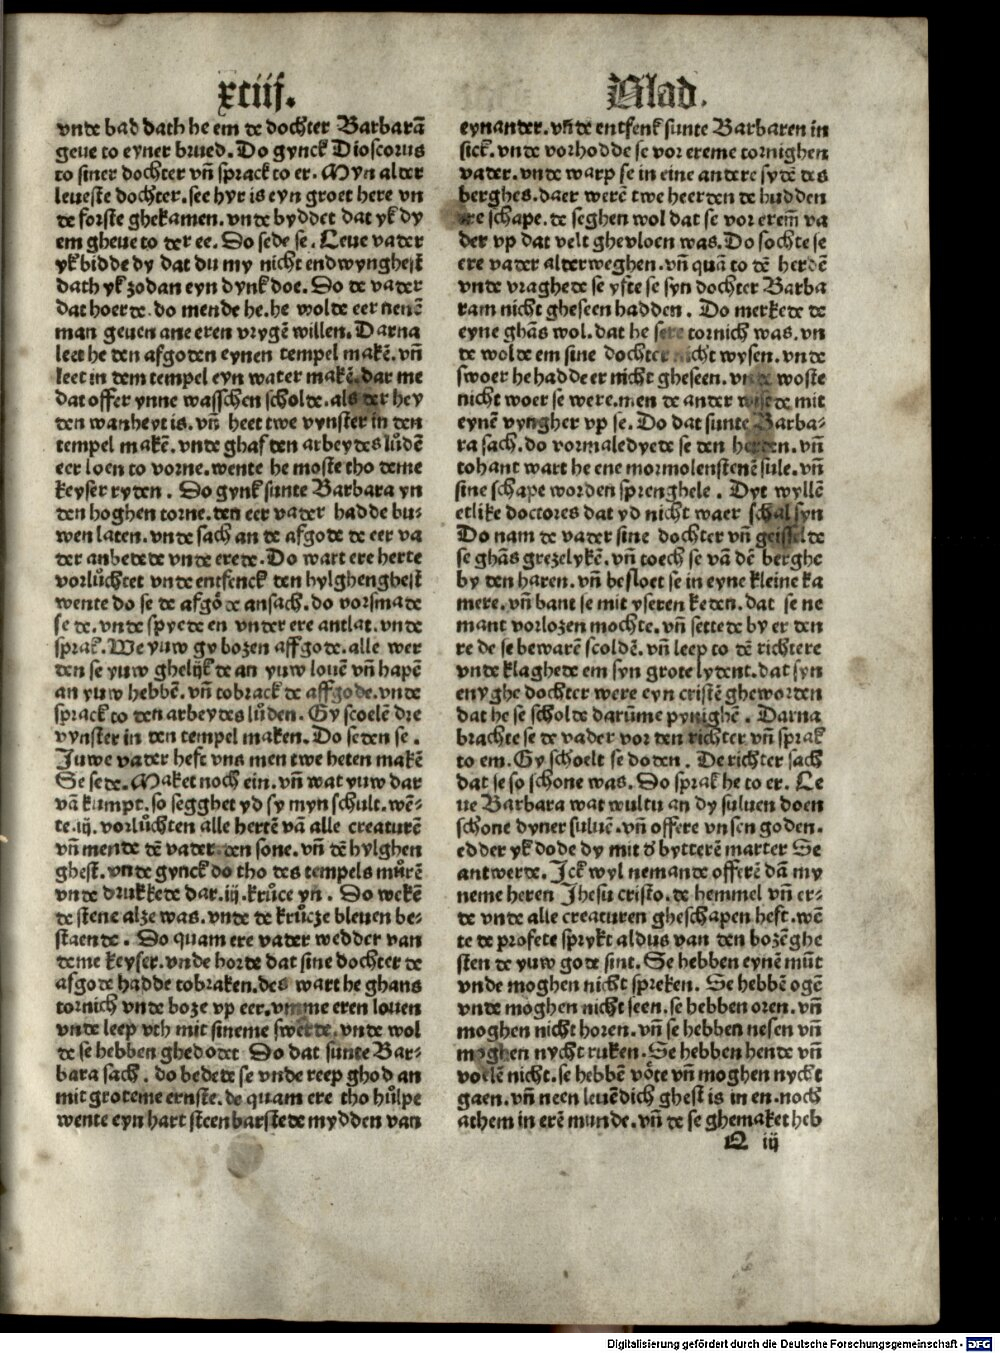 xciiij.
Blad.
vnde bad dath he em de dochter Barbarā
geue to eyner brued. Do gynck Dioscorus
to siner dochter vñ sprack to er. Myn alder
leueste dochter. see hyr is eyn groet here vn
de forste ghekamen. vnde byddet dat yk dy
em gheue to der ee. Do sede se. Leue vader
yk bidde dy dat du my nicht endwynghest
dath yk zodan eyn dynk doe. Do de vader
dat hoerde. do mende he. he wolde eer nenē
man geuen ane eren vrygē willen. Darna
leet he den afgoden eynen tempel makē. vñ
leet in dem tempel eyn water makē. dar me
dat offer ynne wasschen scholde. als der hey
den wanheyt is. vñ heet twe vynster in den
tempel makē. vnde ghaf den arbeydes lůdē
eer loen to vorne. wente he moste tho deme
keyser ryden. Do gynk sunte Barbara yn
den hoghen torne. den eer vader hadde bu-
wen laten. vnde sach an de afgode de eer va
der anbedede vnde erede. Do wart ere herte
vorlůchtet vnde entfenck den hylghenghest
wente do se de afgode ansach. do vorsmade
se de. vnde spyede en vnder ere antlat. vnde
sprak. We yuw gy bozen affgode. alle wer
den se yuw ghelijk de an yuw louē vñ hapē
an yuw hebbē. vñ tobrack de affgode. vnde
sprack to den arbeydes lůden. Gy scoelē dre
vynster in den tempel maken. Do seden se.
Juwe vader heft vns men twe heten makē
Se sede. Maket noch ein. vñ wat yuw dar
vā kumpt. so segghet yd sy myn schult. wē-
te .iij. vorlůchten alle hertē vā alle creaturē
vñ mende dē vader. den sone. vñ dē hylghen
ghest. vnde gynck do tho des tempels můrē
vnde drukkede dar .iij. krůce yn. Do wekē
de stene alze was. vnde de krůcze bleuen be-
staende. Do quam ere vader wedder van
deme keyser. vnde horde dat sine dochter de
afgode hadde tobraken. des wart he ghans
tornich vnde boze vp eer. vmme eren louen
vnde leep vth mit sineme swerde. vnde wol
de se hebben ghedodet Do dat sunte Bar-
bara sach. do bedede se vnde reep ghod an
mit groteme ernste. de quam ere tho hůlpe
wente eyn hart steen barstede mydden van
eynander. vñde entfenk sunte Barbaren in
sick. vnde vorhodde se vor ereme tornighen
vader. vnde warp se in eine andere syde des
berghes. daer werē twe heerden de hudden
ere schape. de seghen wol dat se vor erem̄ va
der vp dat velt ghevloen was. Do sochte se
ere vader alderweghen. vñ quā to dē herdē
vnde vraghede se yfte se syn dochter Barba
ram nicht gheseen hadden. Do merkede de
eyne ghās wol. dat he sere tornich was. vn
de wolde em sine dochter nicht wysen. vnde
swoer he hadde er nicht gheseen. vnde woste
nicht woer se were. men de ander wisede mit
eynē vyngher vp se. Do dat sunte Barba-
ra sach. do vormaledyede se den herden. vñ
tohant wart he ene mormolenstenē sůle. vñ
sine schape worden sprenghele. Dyt wyllē
etlike doctores dat yd nicht waer schal syn
Do nam de vader sine dochter vñ geisselde
se ghās grezelykē. vñ toech se vā dē berghe
by den haren. vñ besloet se in eyne kleine ka
mere. vñ bant se mit yseren keden. dat se ne
mant vorlozen mochte. vñ settede by er den
re de se bewarē scoldē. vñ leep to dē richtere
vnde klaghede em syn grote lydent. dat syn
enyghe dochter were eyn cristē gheworden
dat he se scholde darūme pynighē. Darna
brachte se de vader vor den richter vñ sprak
to em. Gy schoelt se doden. De richter sach
dat se so schone was. Do sprak he to er. Le
ue Barbara wat wultu an dy suluen doen
schone dyner suluē. vñ offere vnsen goden.
edder yk dode dy mit d' bytterē marter Se
antwerde. Jck wyl nemande offerē dā my
neme heren Jhesu cristo. de hemmel vñ er-
de vnde alle creaturen gheschapen heft. wē
te de profete sprykt aldus van den bozēghe
sten de yuw gode sint. Se hebben eynē mūt
vnde moghen nicht spreken. Se hebbē ogē
vnde moghen nicht seen. se hebben oren. vñ
moghen nicht horen. vñ se hebben nesen vñ
moghen nycht ruken. Se hebben hende vñ
voelē nicht. se hebbē vöte vñ moghen nycht
gaen. vñ neen leuēdich ghest is in en. noch
athem in erē munde. vñ de se ghemaket heb
Q iij
Digitalisierung gefördert durch die Deutsche Forschungsgemeinschaft - DFG